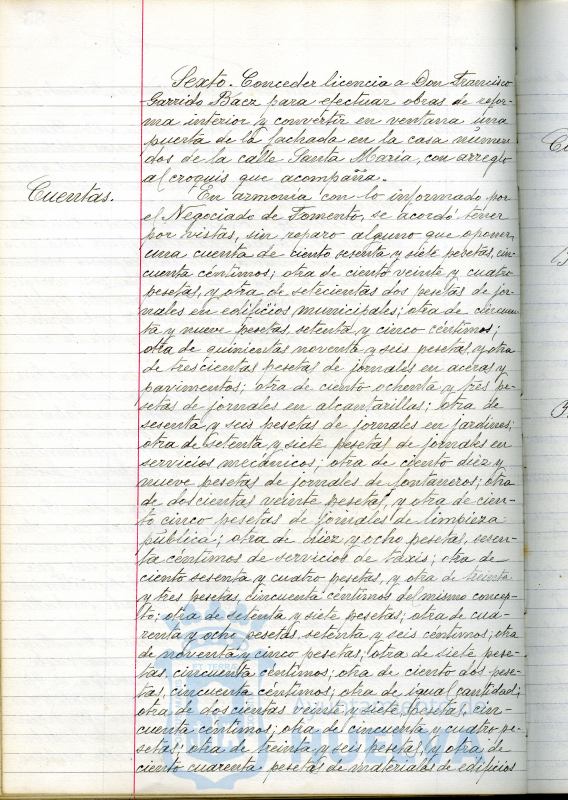 Sexto. Conceder licencia a Don Francisco
Garrido Baez para efectuar obras de refor-
ma interior y convertir en ventana una
puerta de la fachada en la casa número
dos de la calle Santa María, con arreglo
al croquis que acompaña.
Cuentas.
En armonía con lo informado por
el Negociado de Fomento, se acordó tener
por vistas, sin reparo alguno que oponer,
una cuenta de ciento sesenta y siete pesetas, cin-
cuenta céntimos; otra de ciento veinte y cuatro
pesetas, y otra de setecientas dos pesetas de jor-
nales en edificios municipales; otra de cincuen-
ta y nueve pesetas, setenta y cinco céntimos;
otra de quinientas noventa y seis pesetas, y otra
de trescientas pesetas de jornales en aceras y
pavimentos; otra de ciento ochenta y tres pe-
setas de jornales en alcantarillas; otra de
sesenta y seis pesetas de jornales en jardines;
otra de setenta y siete pesetas de jornales en
servicios mecánicos; otra de ciento diez y
nueve pesetas de jornales de fontaneros; otra
de doscientas veinte pesetas, y otra de cien-
to cinco pesetas de jornales de limpieza
pública; otra de diez y ocho pesetas, sesen-
ta céntimos de servicios de taxis; otra de
ciento sesenta y cuatro pesetas, y otra de treinta
y tres pesetas, cincuenta céntimos del mismo concep-
to; otra de setenta y siete pesetas; otra de cua-
renta y ocho pesetas, setenta y seis céntimos; otra
de noventa y cinco pesetas; otra de siete pese-
tas, cincuenta céntimos; otra de ciento dos pese-
tas, cincuenta céntimos; otra de igual cantidad;
otra de doscientas veinte y siete pesetas, cin-
cuenta céntimos; otra de cincuenta y cuatro pe-
setas; otra de treinta y seis pesetas, y otra de
ciento cuarenta pesetas de materiales de edificios